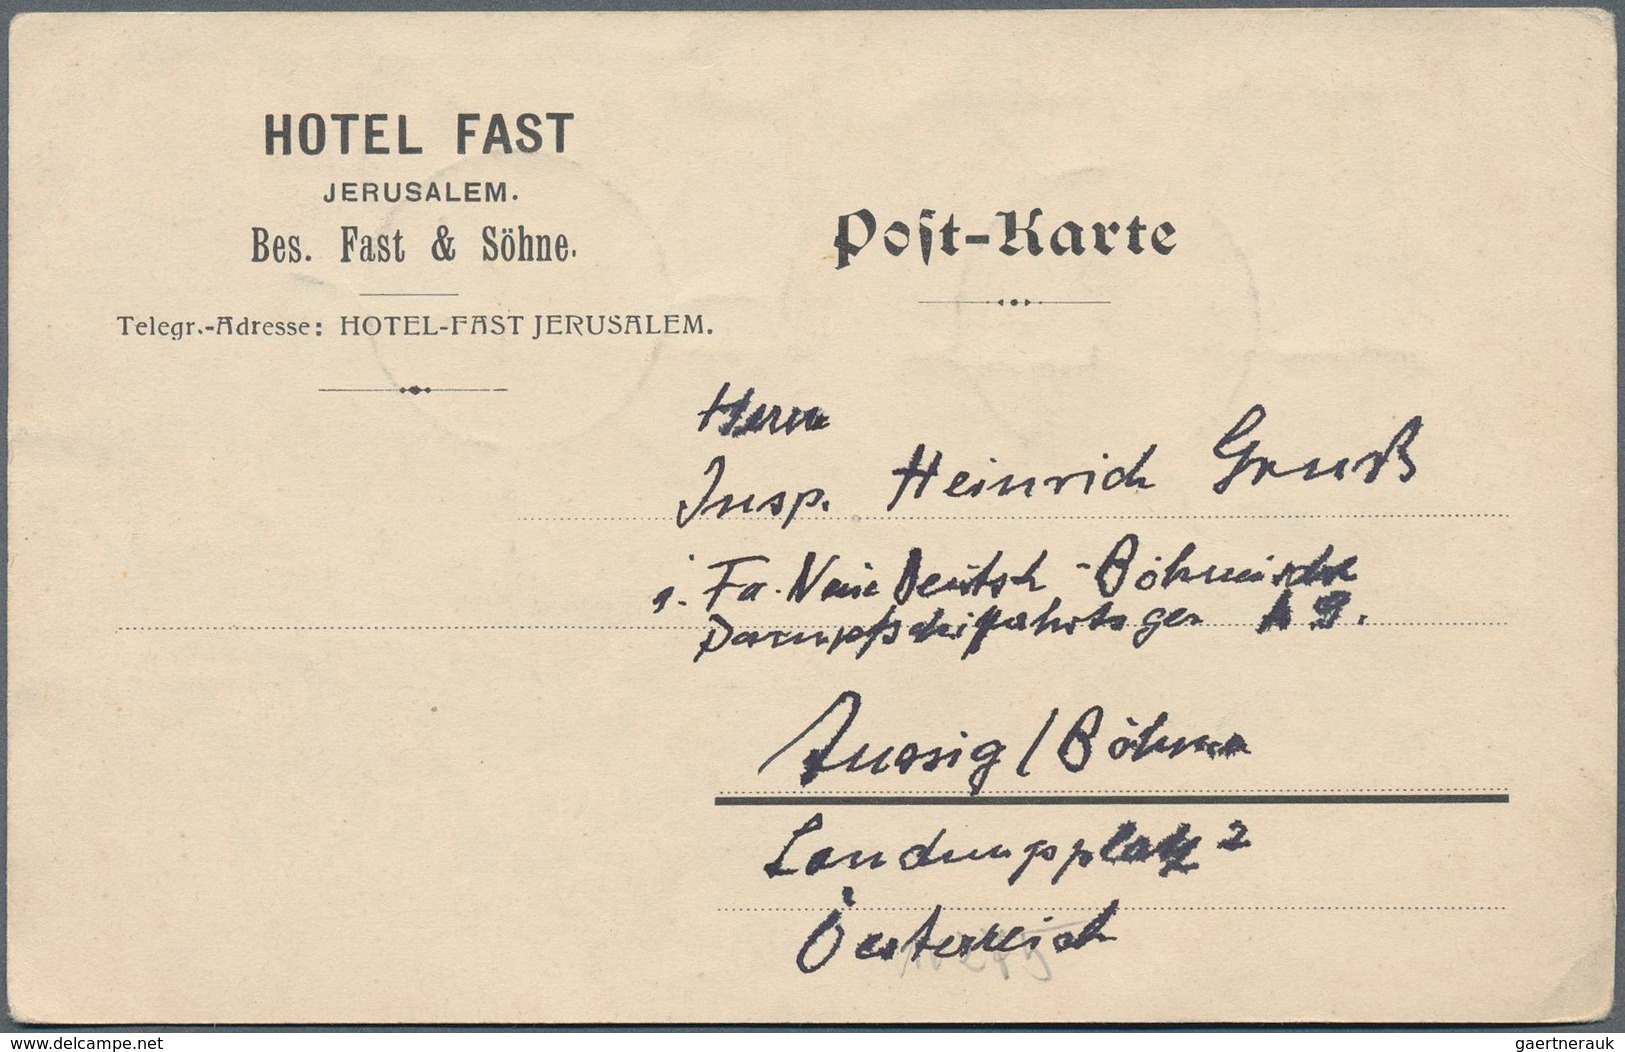 HOTEL FAST
JERUSALEM.
Bes. Fast & Söhne.
Telegr.-Adresse: HOTEL-FAST JERUSALEM.
Post-Karte
Herrn
Insp. Heinrich Gruß
i. Fa. Neue Deutsch-Böhmische
Dampfschiffahrtsges AG.
Aussig/Böhmen
Landungsplatz 2
Oesterreich
www.delcampe.net
gaertnerauk